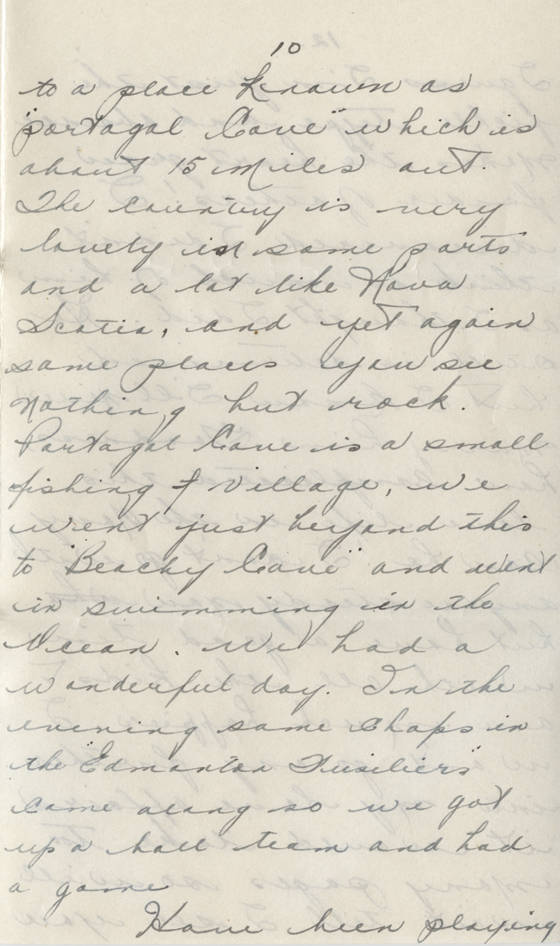 10
to a place known as
"Portagal Cove" which is
about 15 miles out.
The country is very
lovely in some parts
and a lot like Nova
Scotia, and yet again
some places you see
nothing but rock.
Portagal Cove is a small
fishing village, we
went just beyond this
to "Beachy Cove" and went
in swimming in the
Ocean. We had a
wonderful day. In the
evening some chaps in
the "Edmonton Fusiliers"
came along so we got
up a ball team and had
a game
Have been playing